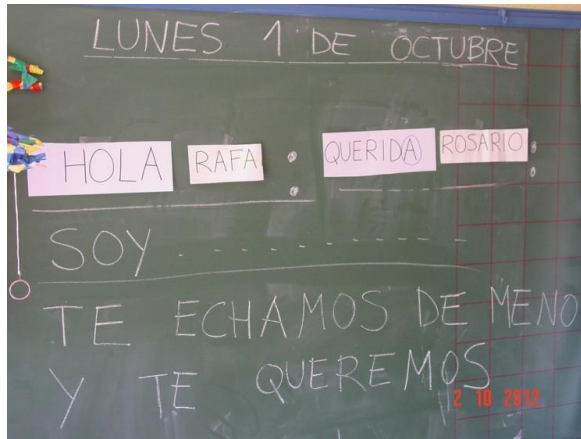 LUNES 1 DE OCTUBRE
HOLA RAFA : QUERIDA ROSARIO :
SOY . - - - - - - - - -
TE ECHAMOS DE MENO
Y TE QUEREMOS
2 10 2012